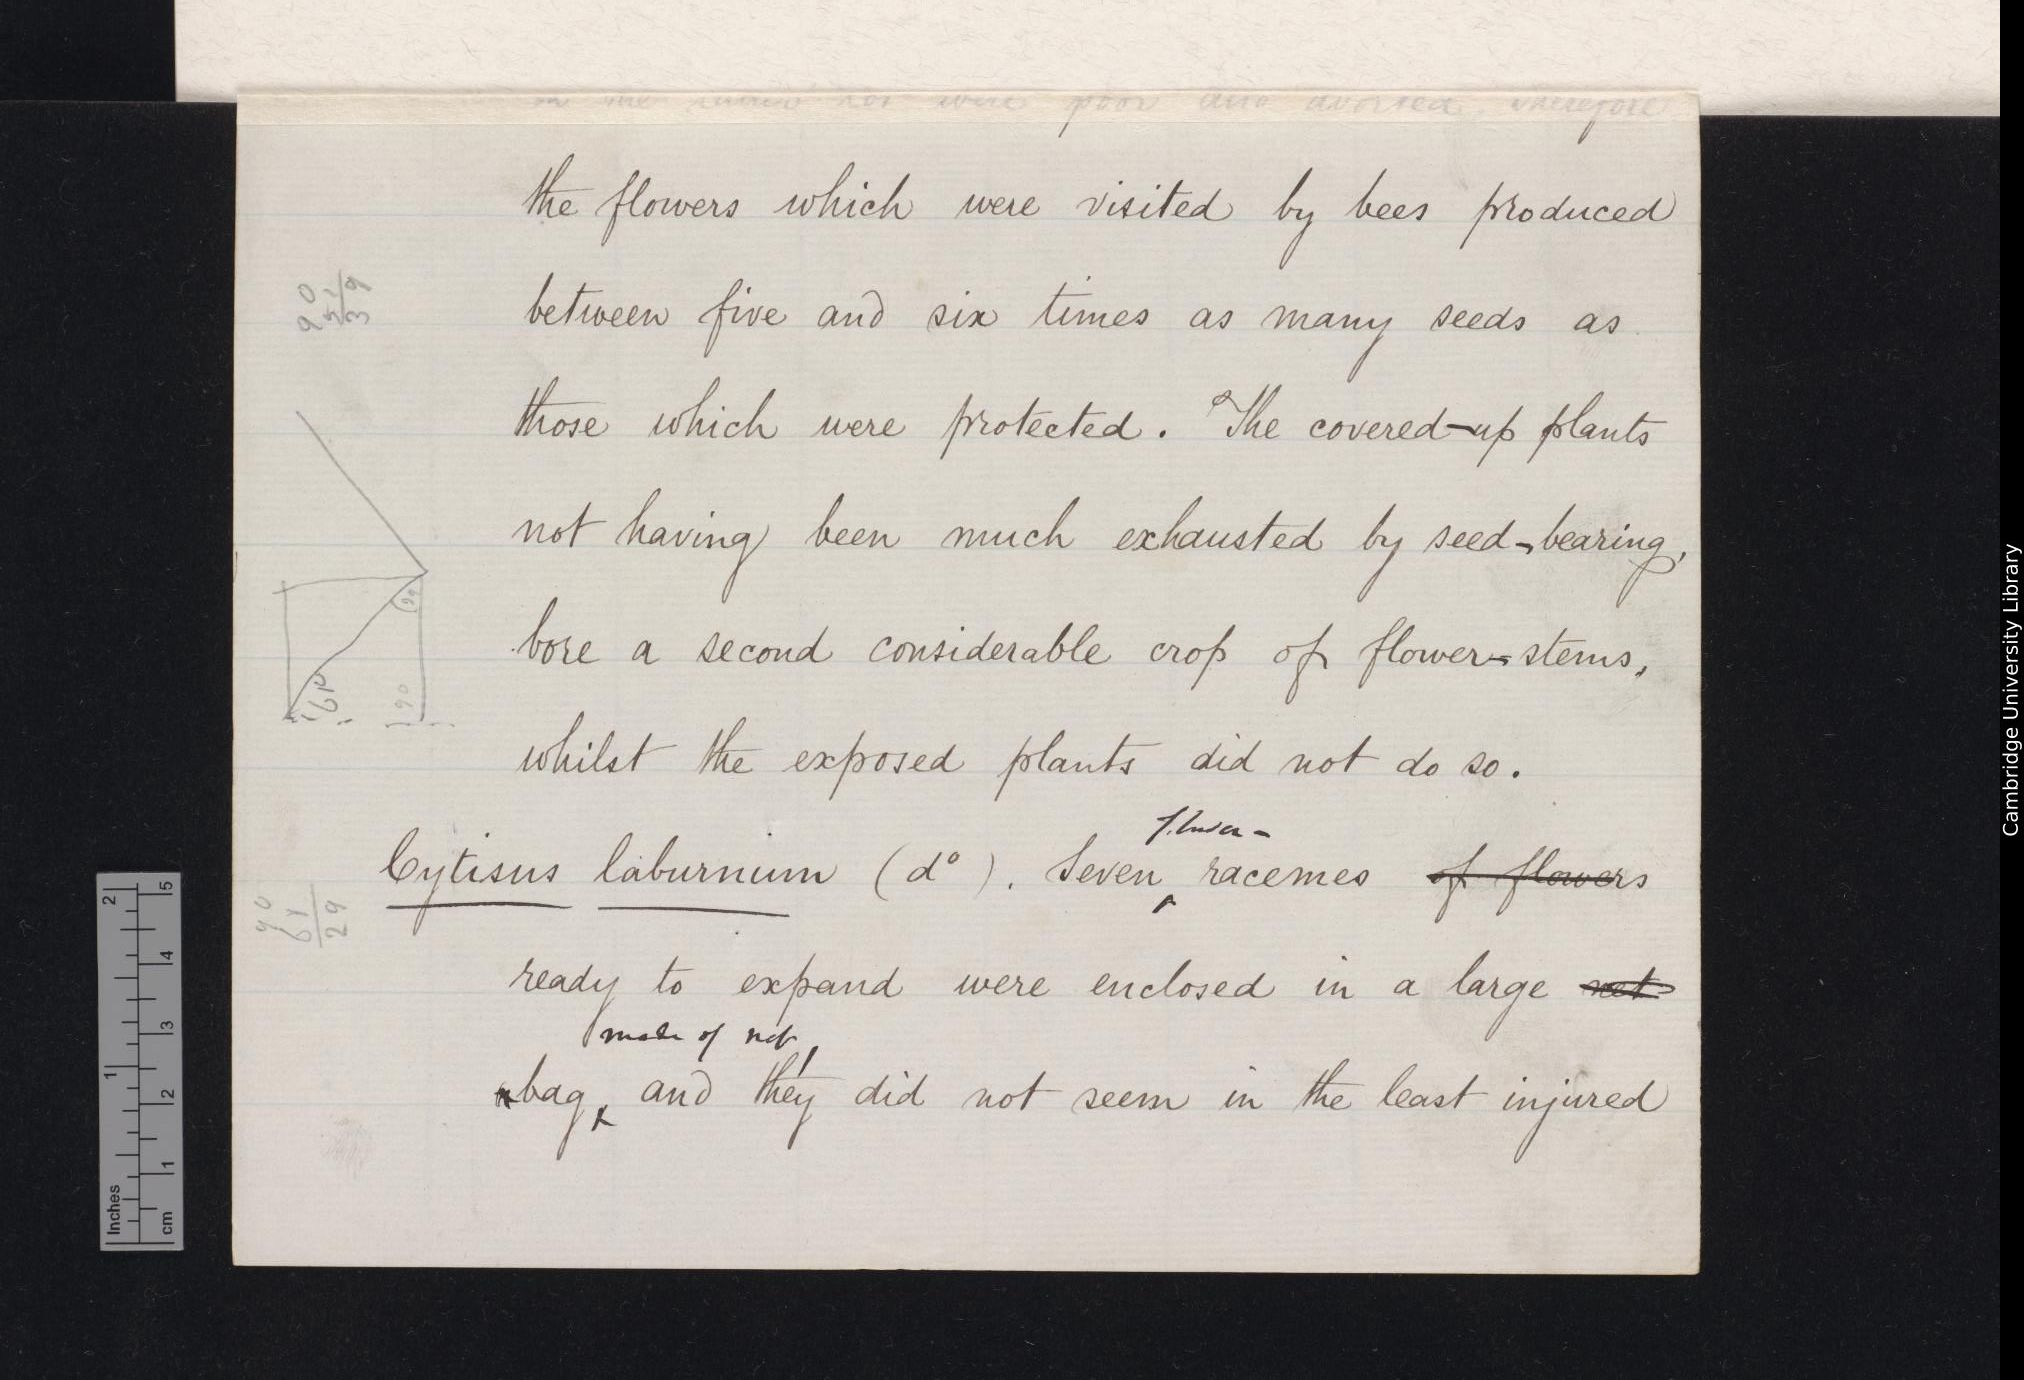 poor and aborted, therefore
the flowers which were visited by bees produced
between five and six times as many seeds as
those which were protected. The covered-up plants
not having been much exhausted by seed-bearing,
bore a second considerable crop of flower-stems,
whilst the exposed plants did not do so.
flower-
Cytisus laburnum (do). Seven racemes of flowers
ready to expand were enclosed in a large net
made of net,
bag, and they did not seem in the least injured
90
51
39
90
61
29
90
Inches 1 2
cm 1 2 3 4 5
Cambridge University Library